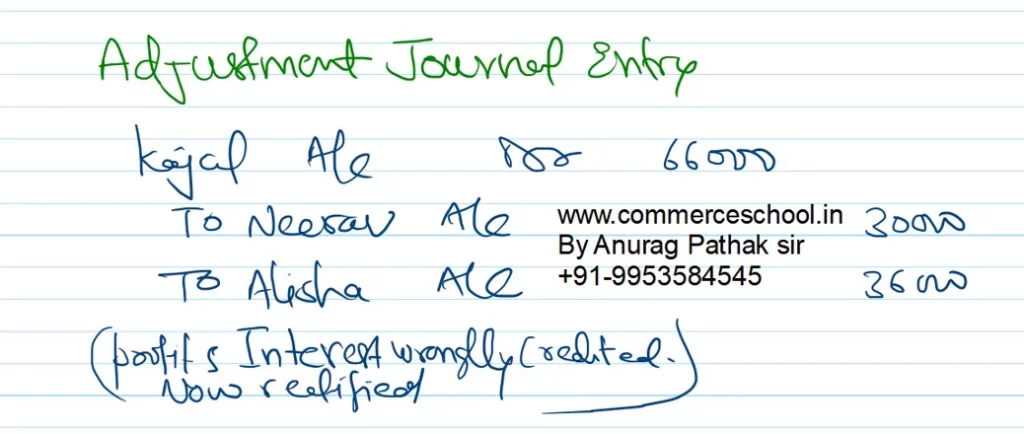 Adjustment Journal Entry
Kajal A/c Dr 66000
To Neerav A/c 30000
www.commerceschool.in
By Anurag Pathak sir
To Alisha A/c 36000
+91-9953584545
(profit & Interest wrongly Credited.
Now rectified)